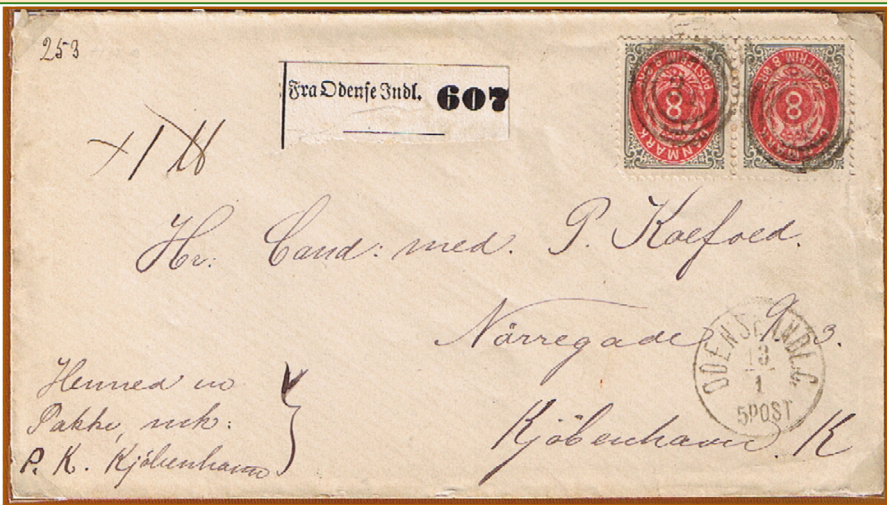 253
Fra Odense Indl. 607
POSTFRIM. 8
8
DANMARK
POSTFRIM. 8
8
+ 1
Hr. Cand: med. P. Koefoed.
Nörregade 9 3.
ODENSE INDLC
13
1
5POST
Kjöbenhavn. K
Hermed
Pakke, mrk:
P. K. Kjöbenhavn